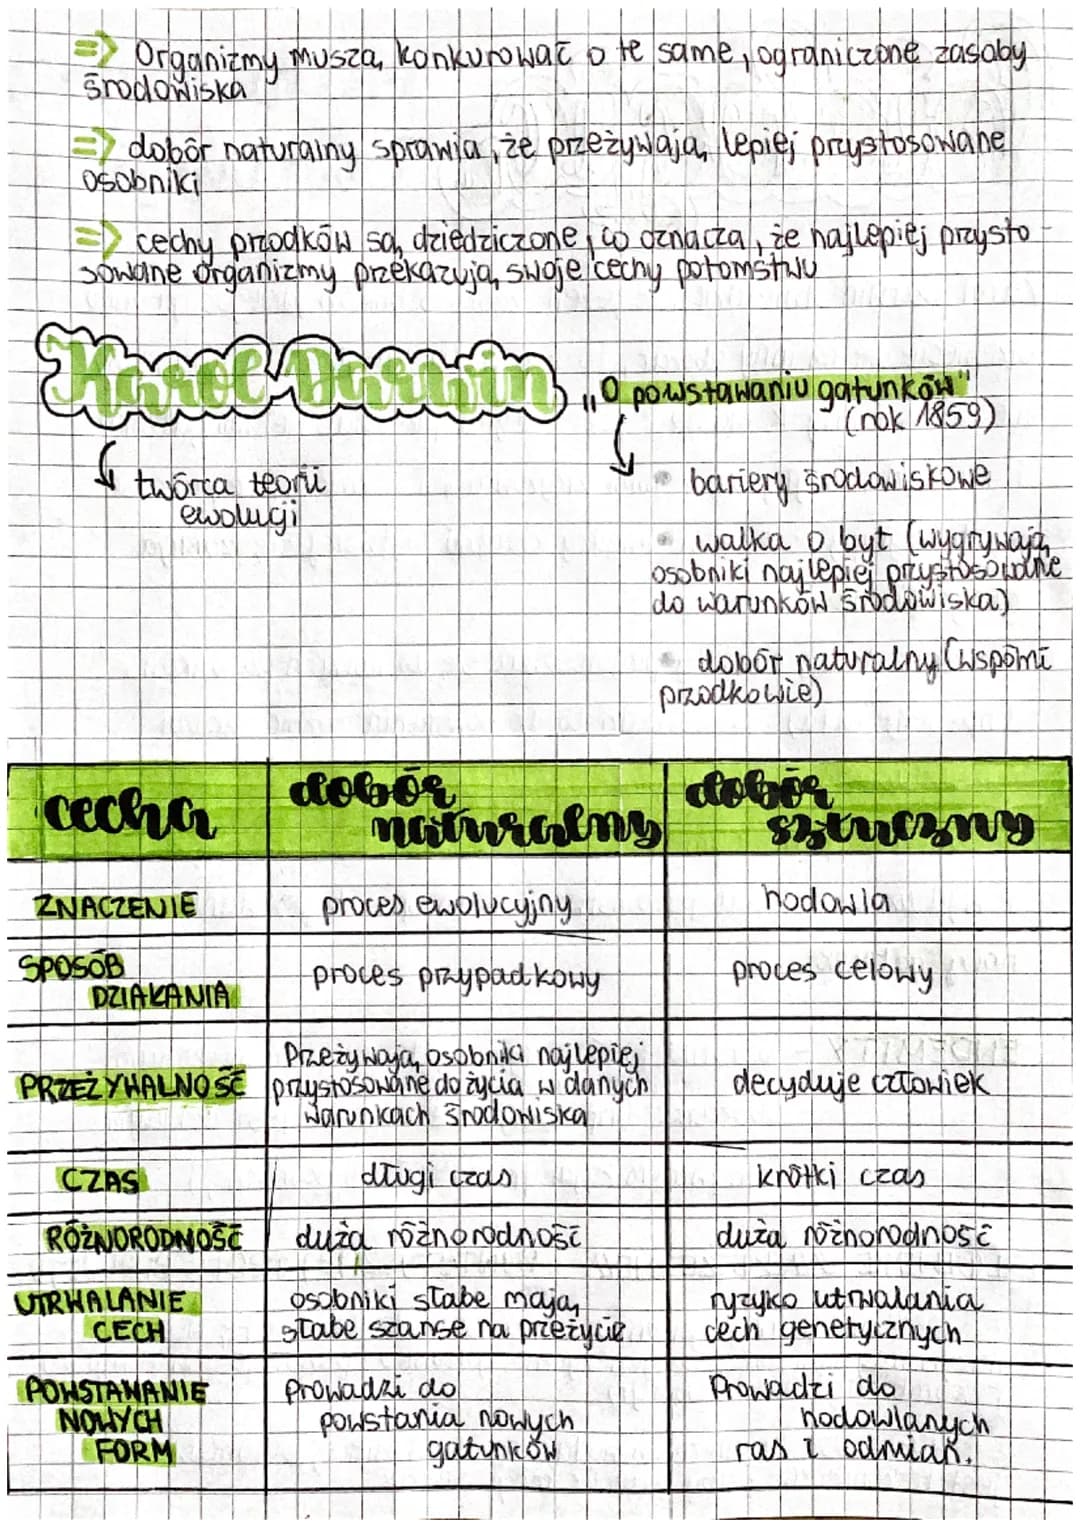 => Organizmy muszą konkurować o te same, ograniczone zasoby
środowiska
=> dobór naturalny sprawia, że przeżywają lepiej przystosowane
osobniki
=> cechy przodków są dziedziczone, co oznacza, że najlepiej przysto-
sowane organizmy przekazują swoje cechy potomstwu
Karol Darwin
„O powstawaniu gatunków"
(rok 1859)
twórca teorii
ewolucji
• bariery środowiskowe
• walka o byt (wygrywają
osobniki najlepiej przystosowane
do warunków środowiska)
• dobór naturalny (wspólni
przodkowie)
cecha
dobór
naturalny
dobór
sztuczny
ZNACZENIE
proces ewolucyjny
hodowla
SPOSÓB
DZIAŁANIA
proces przypadkowy
proces celowy
PRZEŻYWALNOŚĆ
Przeżywają osobniki najlepiej
przystosowane do życia w danych
warunkach środowiska
decyduje człowiek
CZAS
długi czas
krótki czas
RÓŻNORODNOŚĆ
duża różnorodność
duża różnorodność
UTRWALANIE
CECH
osobniki słabe mają
słabe szanse na przeżycie
ryzyko utrwalania
cech genetycznych
POWSTAWANIE
NOWYCH
FORM
prowadzi do
powstania nowych
gatunków
Prowadzi do
hodowlanych
ras i odmian.